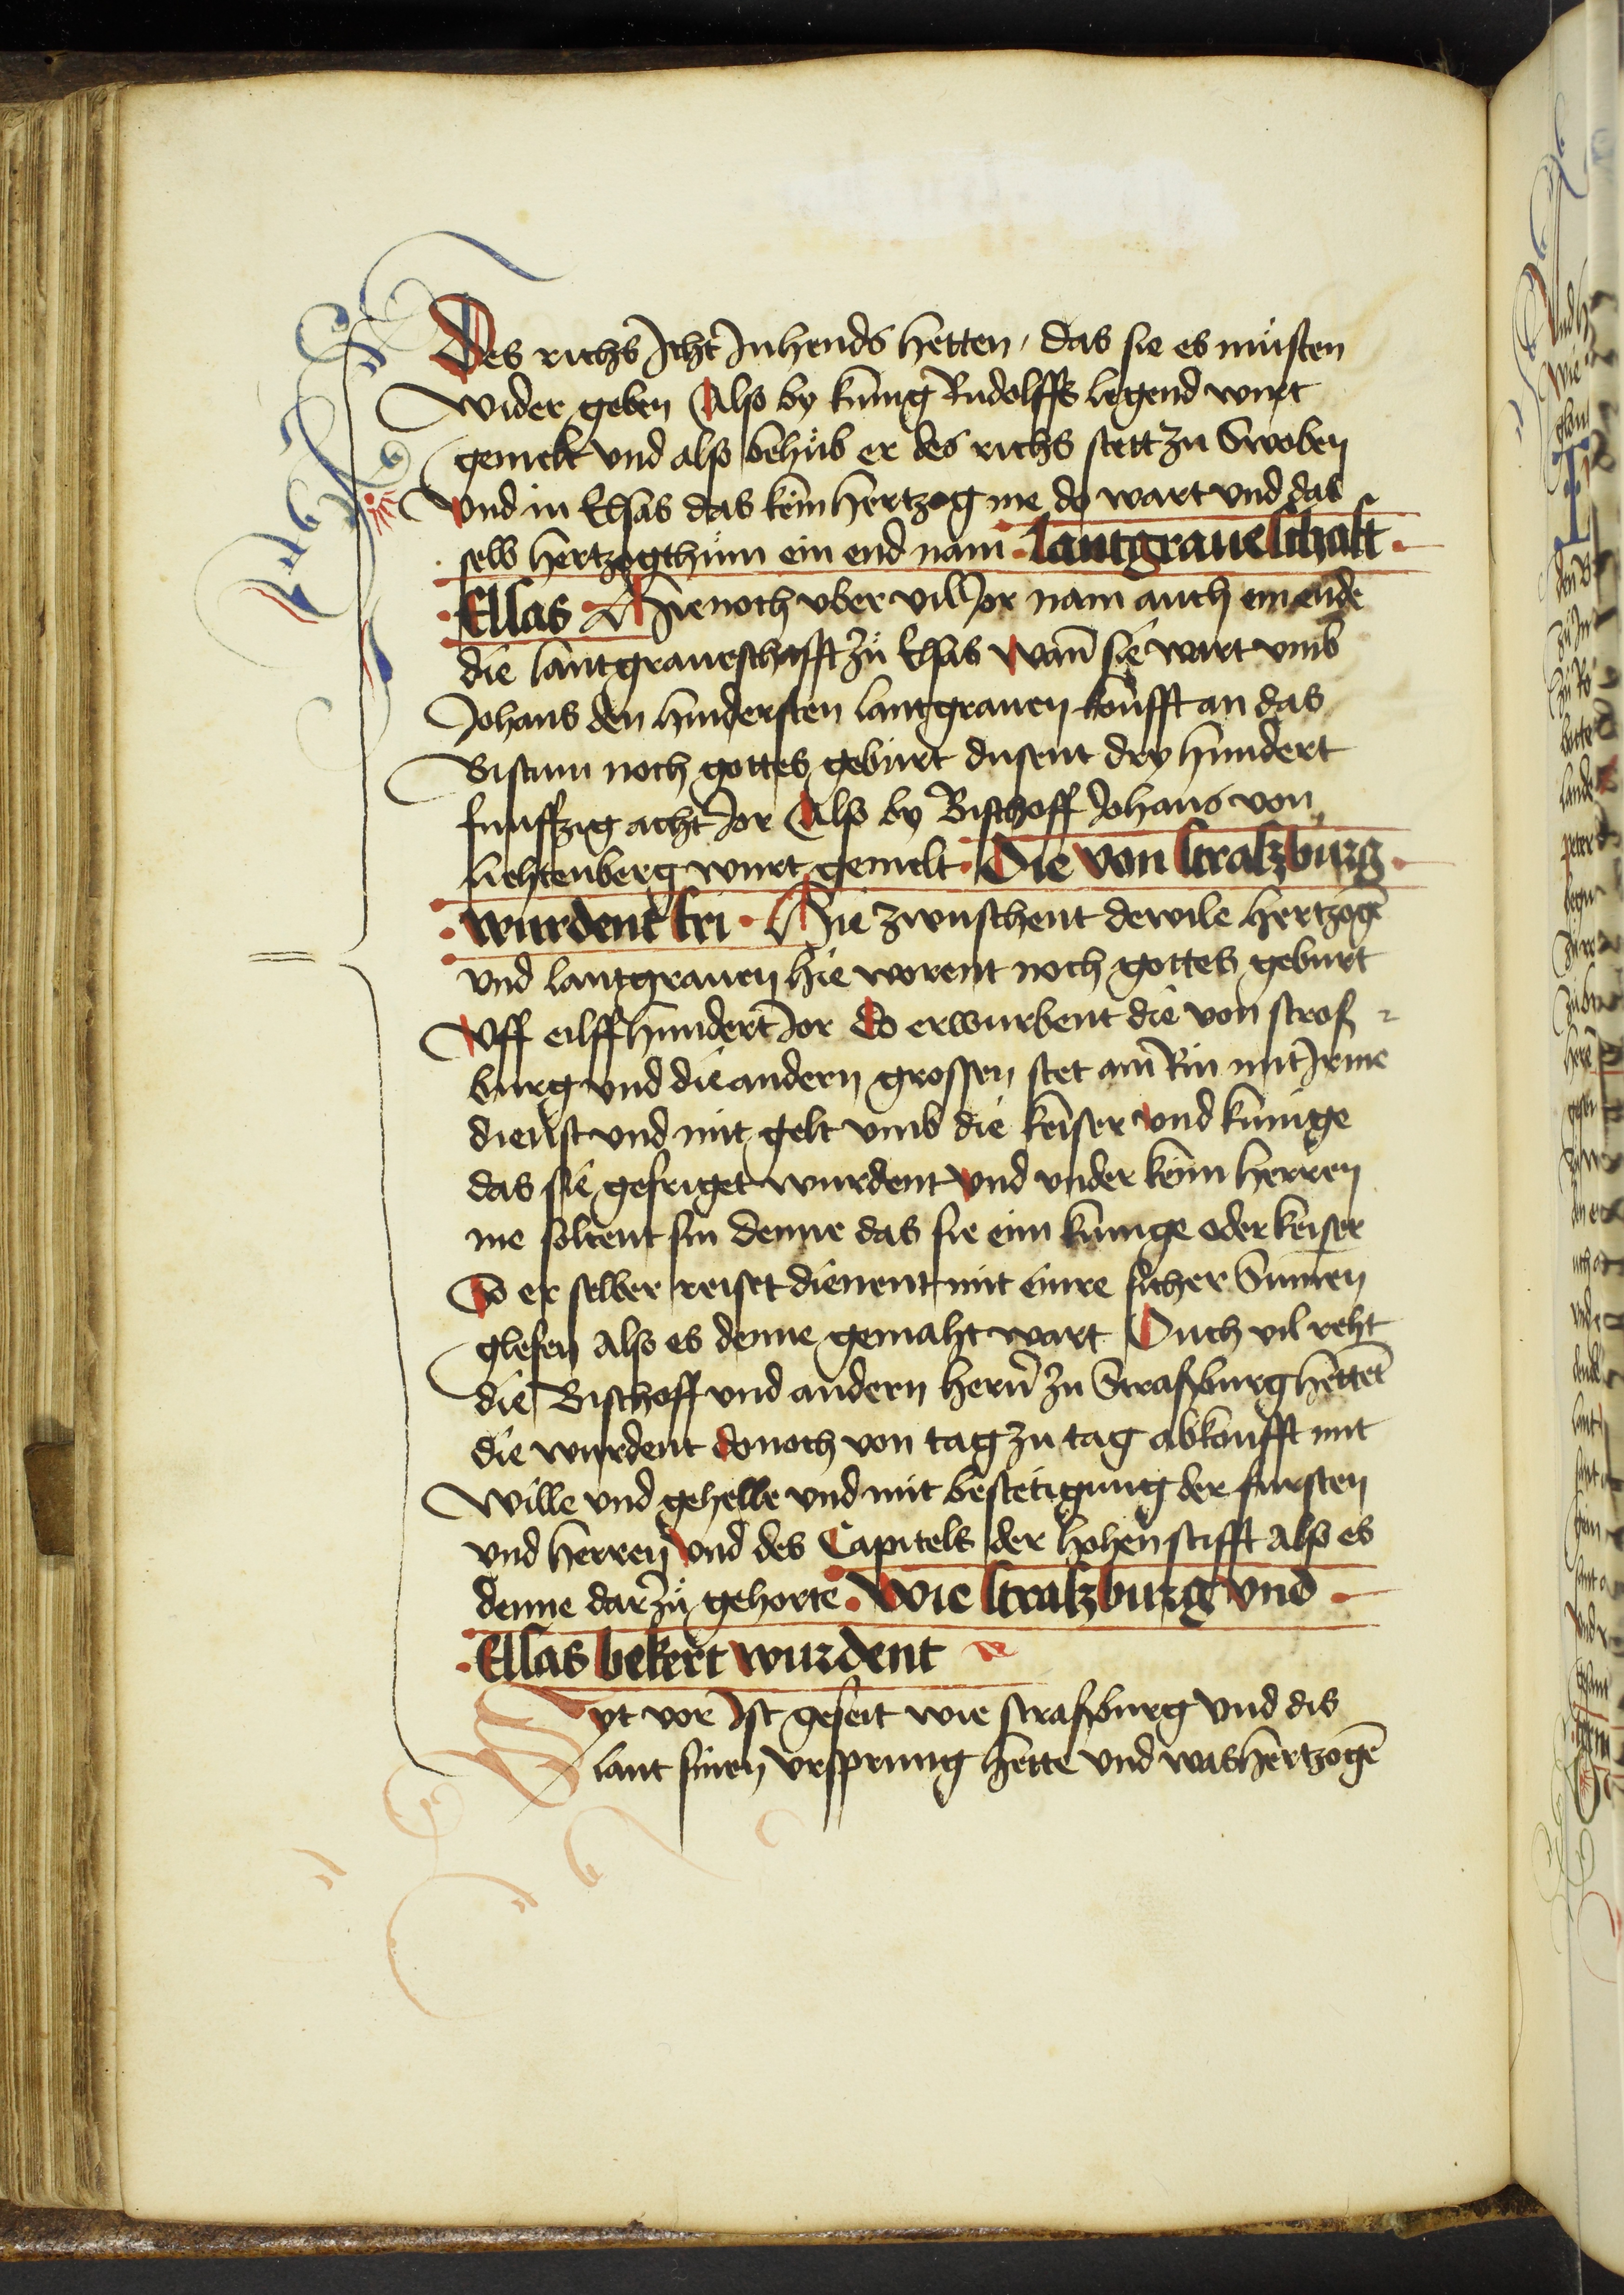 Des richs Icht Inhends hetten / das sie es mùsten
wider geben Also by kunig Rudolffs legend wurt
gemelt vnd also behùb er des richs stett zu Swoben
vnd in Elsas das kein hertzog me do wart vnd das
selb hertzogthùm ein end nam · Lantgraueschaft ·
· Elsas · Hie noch vber vil Jor nam auch ein ende
die lantgraueschafft zù Elsas wañ sie wart vmb
Johans den hindersten lantgrauen koufft an das
Bistum noch gottes geburt dusent dry hundert
funffzig acht Jor Also by Bischoff Johans von
liehtenberg wurt gemelt · Die von straszburg ·
· wurdent fri · Hie zwuschent dewile hertzogē
vnd lantgrauen hie worent noch gottes geburt
vff eilffhundert Jor Do erwurbent die von stros
burg vnd die andern grossen stet am Rin mit Irme
dienst vnd mit gelt vmb die keiser vnd kunige
das sie gefriget wurdent vnd vnder keim herren
me soltent sin denne das sie eim kunge oder keiser
So er selber reiset dienent mit einre sicher Summen
glesen Also es denne gemaht wart Ouch vil reht
die Bischoff vnd andern herñ zu Straßburg hettēt
die wurdent donoch von tag zu tag abkoufft mit
wille vnd gehelle vnd mit bestetigung der fursten
vnd herren vnd des Capitels der hohenstifft also es
denne dar zù gehorte · Wie straszburg vnd ·
· Elsas bekert wurdent
Syt vor Ist geseit wie straßburg vnd dis
lant sinen vrsprung hette vnd was hertzogē